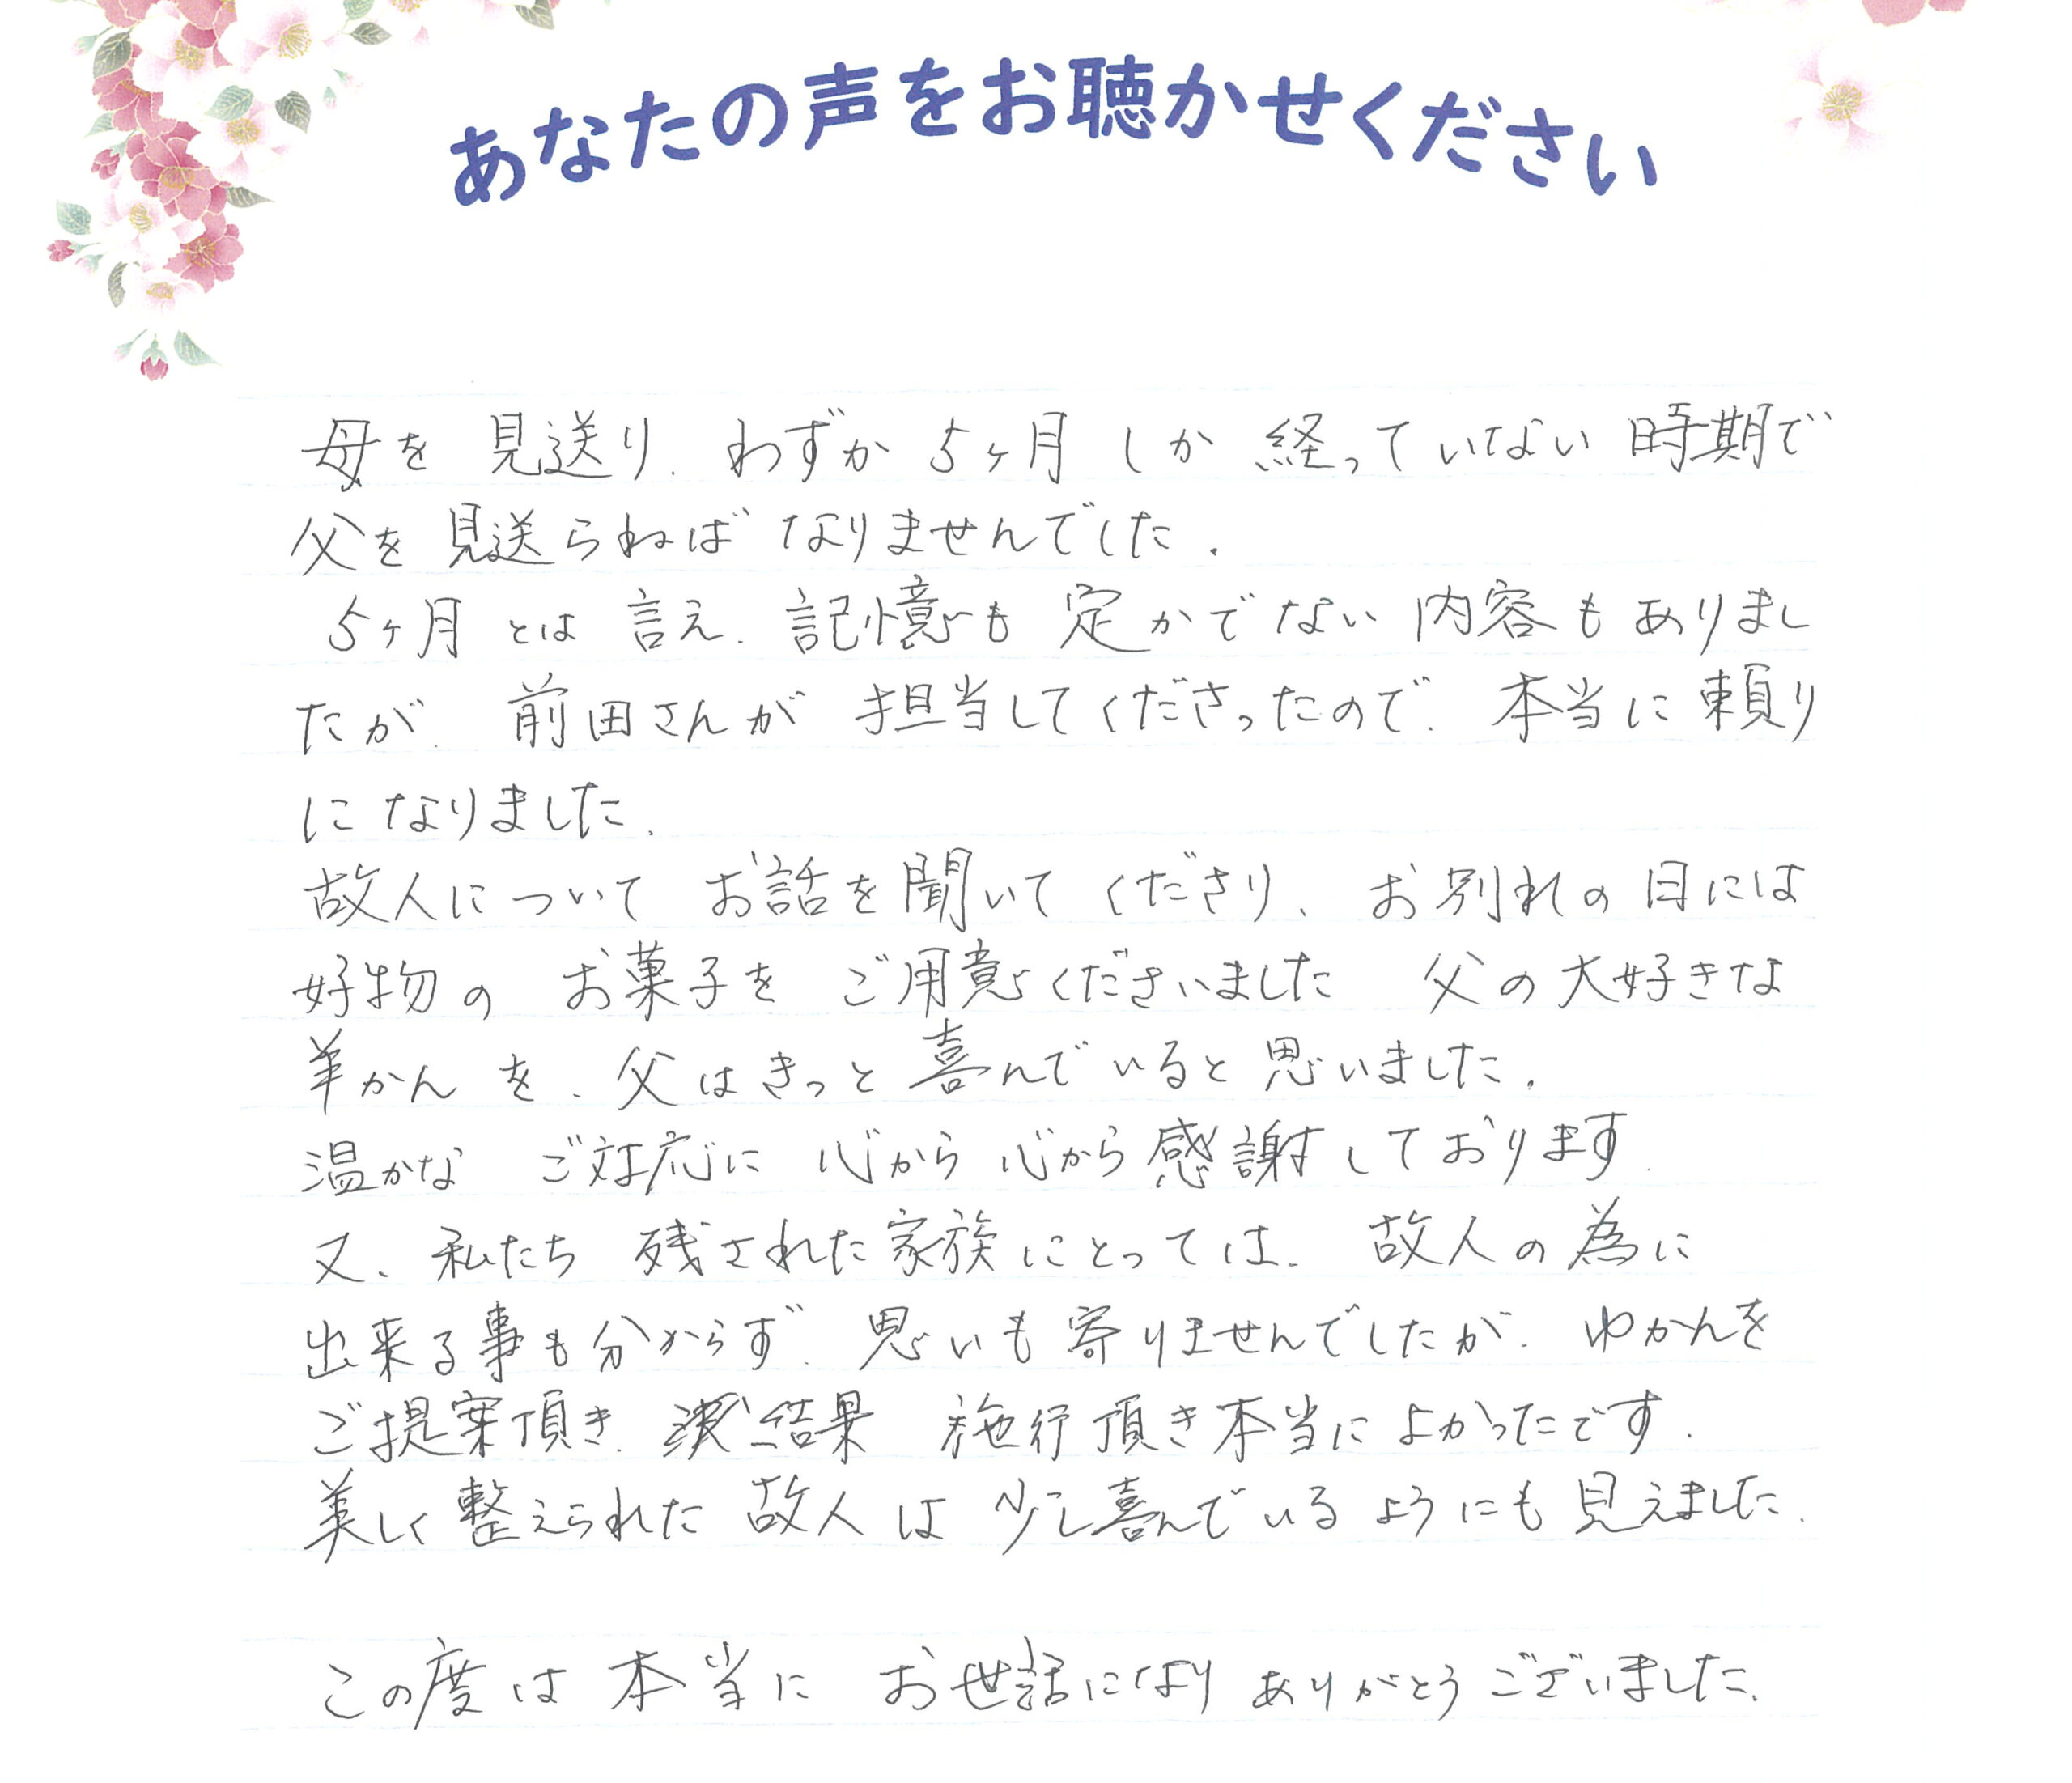 あなたの声をお聴かせください
母を見送り、わずか5ヶ月しか経っていない時期で
父を見送らねばなりませんでした。
5ヶ月とは言え、記憶も定かでない内容もありまし
たが、前田さんが担当してくださったので、本当に頼り
になりました。
故人についてお話を聞いてくださり、お別れの日には
好物のお菓子をご用意くださいました 父の大好きな
羊かんを、父はきっと喜んでいると思いました。
温かなご対応に心から心から感謝しております
又、私たち残された家族にとっては、故人の為に
出来る事も分からず、思いも寄りませんでしたが、ゆかんを
ご提案頂き、結果 施行頂き本当によかったです。
美しく整えられた故人は少し喜んでいるようにも見えました。
この度は本当にお世話になりありがとうございました。